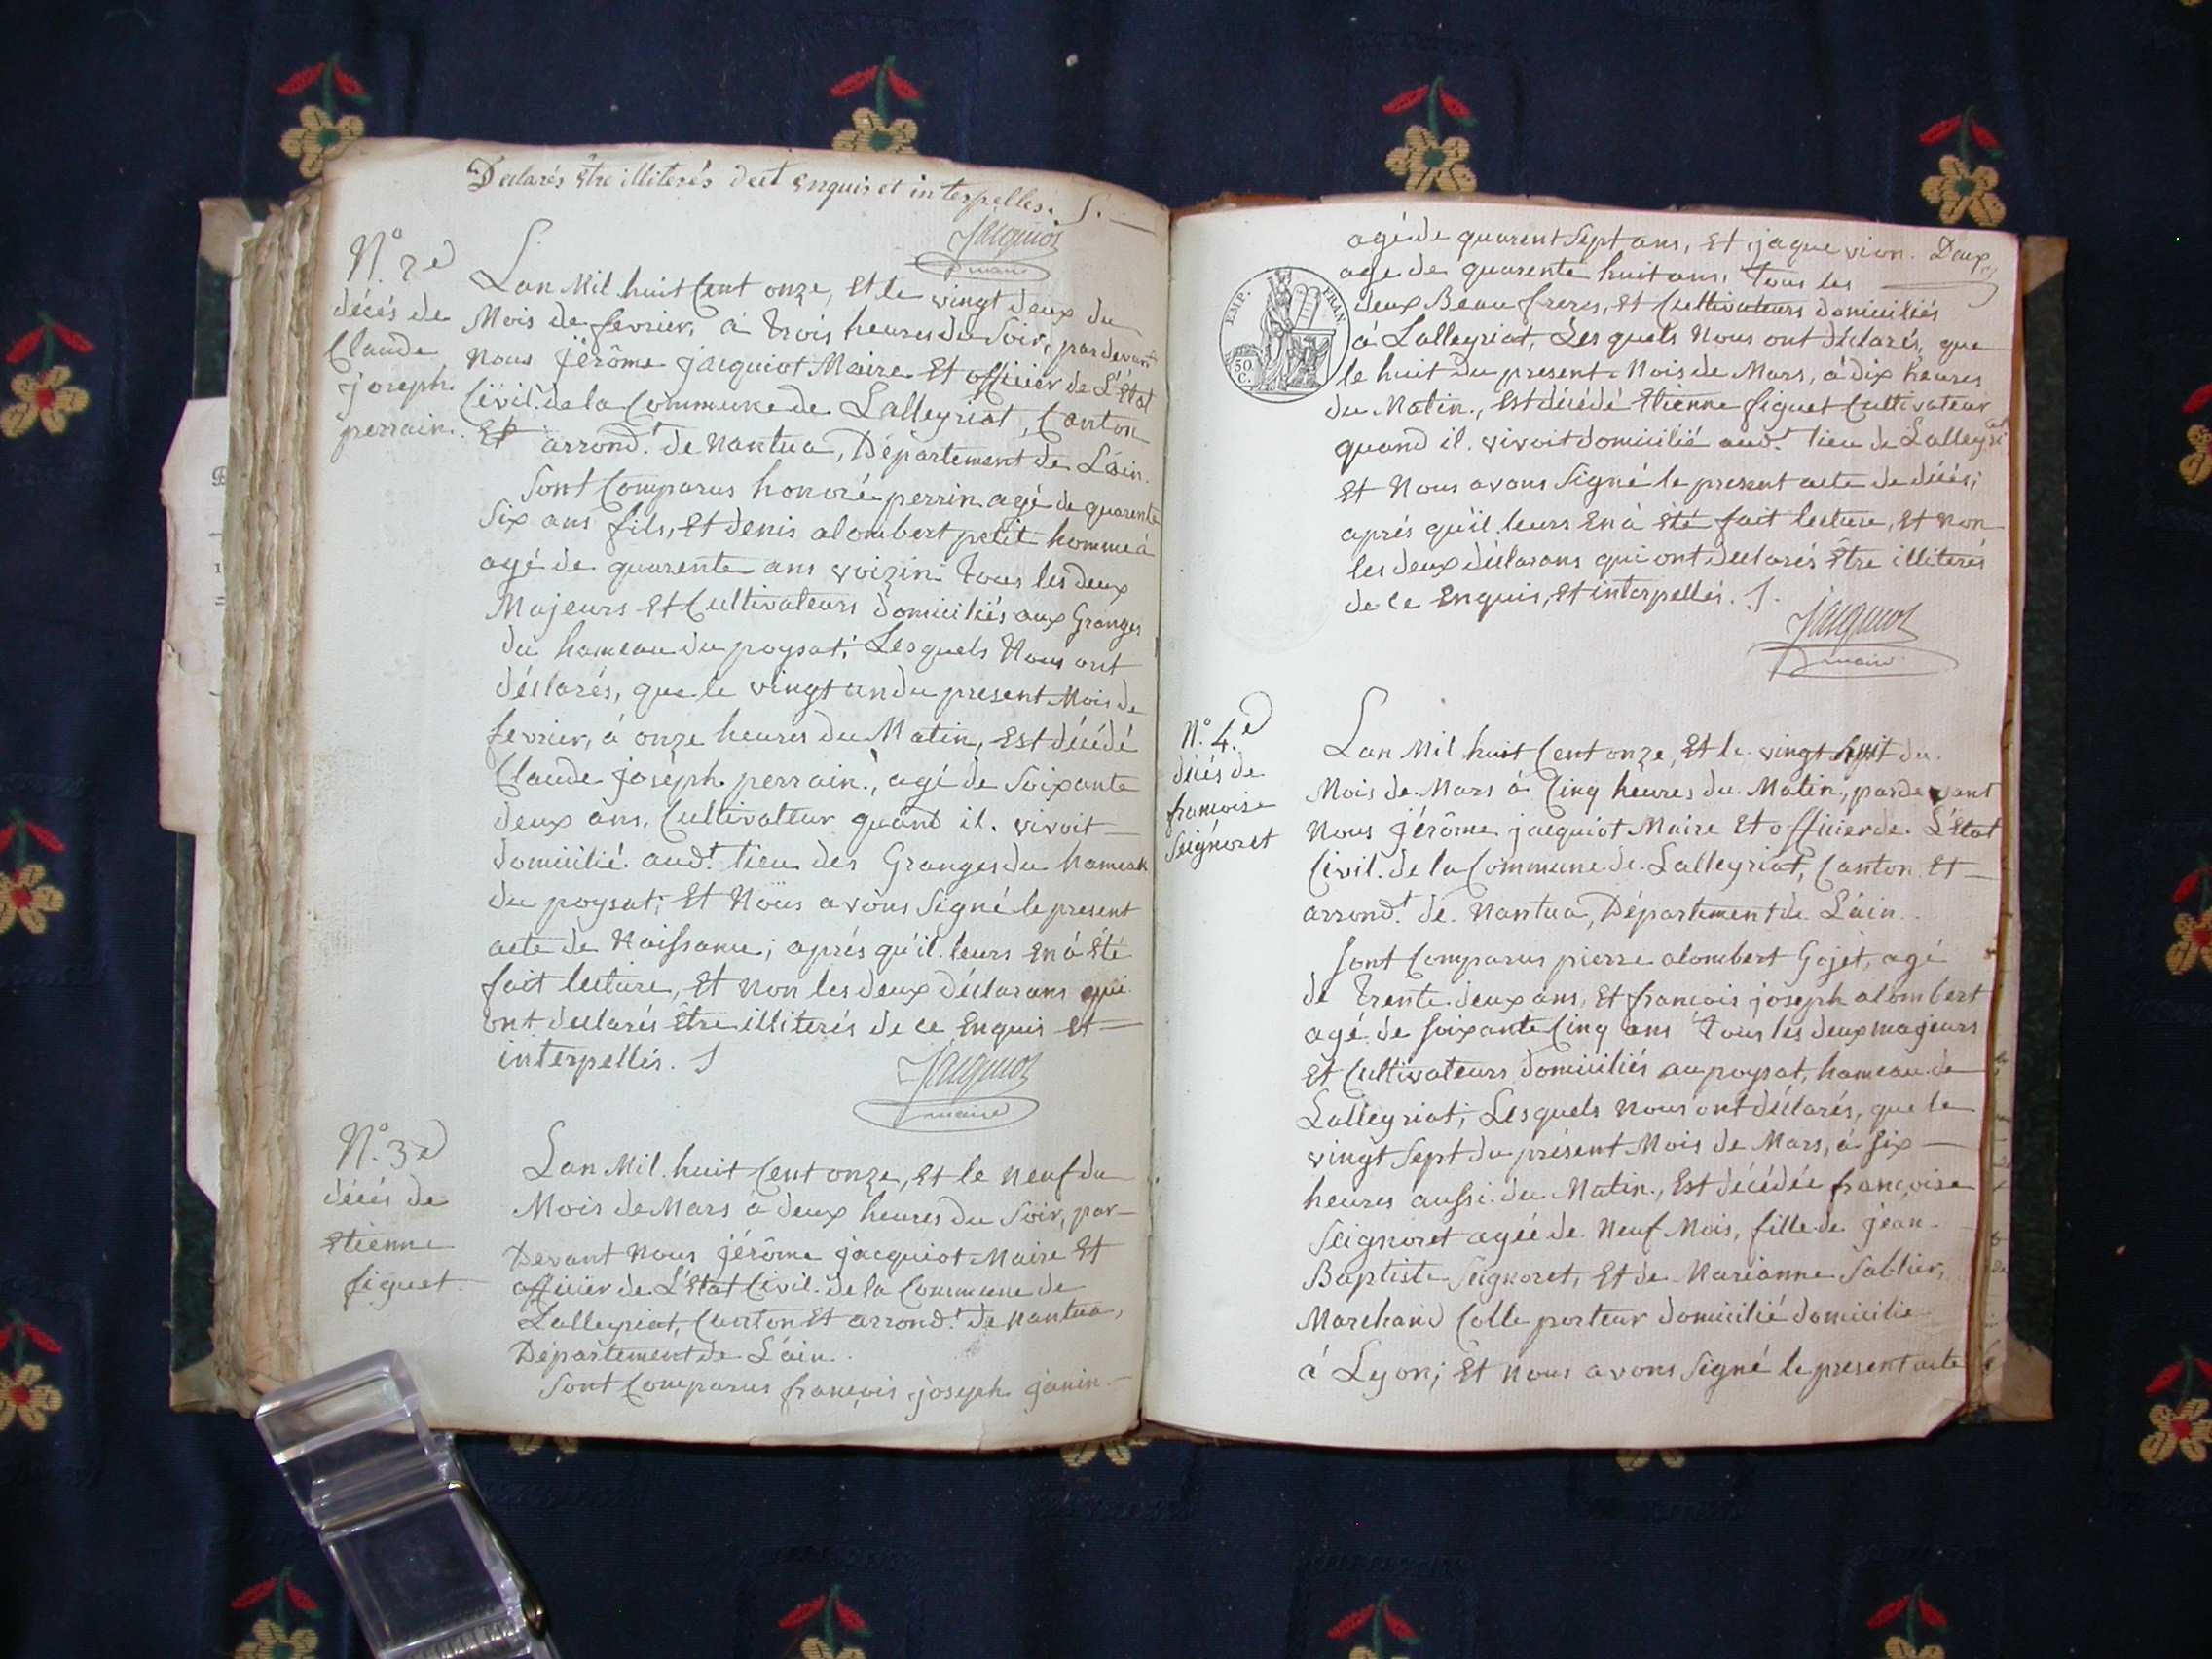 Declarés être illiterés de ce enquis et interpellés. S.
Jacquiot
maire
N.° 2e
décés de
Claude
joseph
perrain.
Lan Mil huit Cent onze, Et le vingt deux du
Mois de fevrier, à trois heures du Soir, pardevant
Nous Jérôme jacquiot Maire Et officier de L'État
Civil de la Commune de Lalleyriat, Canton
Et arrond.t de Nantua, Département de L'ain.
Sont Comparus honoré perrin agé de quarente
Six ans fils, Et denis alombert petit homme à
agé de quarente ans voizin tous les deux
Majeurs Et Cultivateurs domiciliés aux Granges
du hameau du poysat; Lesquels Nous ont
déclarés, que le vingt un du present Mois de
fevrier, à onze heures du Matin, Est décédé
Claude joséph perrain, agé de Soixante
deux ans, Cultivateur quand il vivoit
domicilié aud.t lieu des Granges du hameau
du poysat; Et Nous avons Signé le present
acte de Naissance; aprés qu'il leurs en à été
fait lecture, Et Non les deux déclarans qui
ont declarés être illiterés de ce Enquis et
interpellés. S
Jacquiot
maire
N.° 3e
décés de
Etienne
figuet
Lan Mil huit Cent onze, Et le Neuf du
Mois de Mars à deux heures du Soir, par-
Devant Nous jérôme jacquiot Maire Et
officier de L'Etat Civil de la Commune de
Lalleyriat, Canton Et arrond.t de Nantua,
Département de L'ain.
Sont Comparus françois joseph janin
agé de quarent Sept ans, Et jaque vion Deux
agé de quarente huit ans, Tous les
deux Beau freres, Et Cultivateurs domiciliés
à Lalleyriat, Les quels Nous ont déclarés, que
le huit du present Mois de Mars, à dix heures
du Matin, Est décédé Etienne figuet Cultivateur
quand il vivoit domicilié aud.t lieu de Lalleyriat
Et Nous avons Signé le present acte de décés;
aprés qu'il leurs En à été fait lecture, Et Non
les deux déclarans qui ont declarés Être illiterés
de ce Enquis, Et interpellés. S.
EMP. FRAN.
50
C.
Jacquiot
maire
N.° 4.e
décés de
francoise
Seignoret
Lan Mil huit Cent onze, Et le vingt huit du
Mois de Mars à Cinq heures du Matin, pardevant
Nous Jérôme jacquiot Maire Et officier de L'Etat
Civil de la Commune de Lalleyriat, Canton Et
arrond.t de Nantua, Département de L'ain.
Sont Comparus pierre alombert Gojet, agé
de Trente deux ans, Et françois joseph alombert
agé de soixante Cinq ans Tous les deux majeurs
Et Cultivateurs domiciliés au poysat, hameau de
Lalleyriat; Lesquels Nous ont déclarés, que le
vingt Sept du présent Mois de Mars, à Six
heures aussi du Matin, Est décédée françoise
Seignoret agée de Neuf Mois, fille de jean
Baptiste Seignoret, Et de Marianne Sablier,
Marchand Colle porteur domicilié domicilie
à Lyon; Et Nous avons Signé le present acte